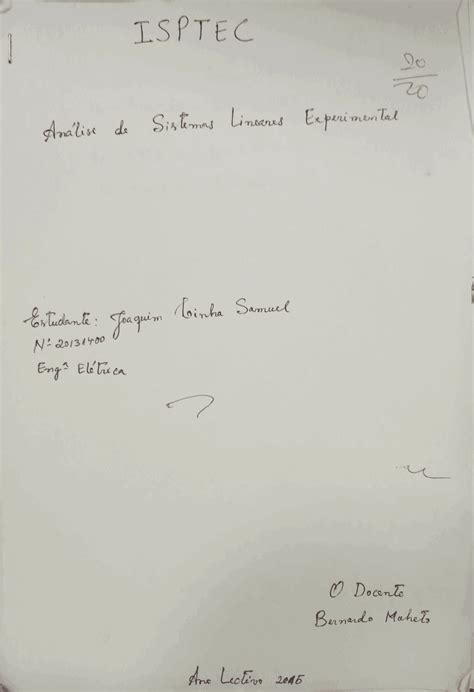 ISPTEC
20
20
Análise de Sistemas Lineares Experimental
Estudante: Joaquim Samuel
Nº 20131400
Engª Elétrica
O Docente
Bernardo
Ano Lectivo 2015